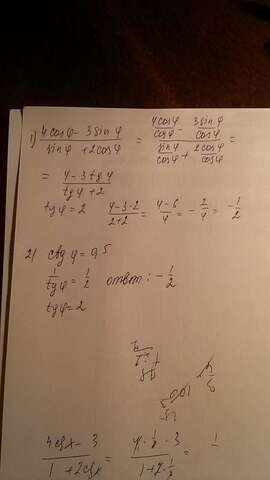 1) (4cosφ - 3sinφ)/(sinφ + 2cosφ) = (4cosφ/cosφ - 3sinφ/cosφ)/(sinφ/cosφ + 2cosφ/cosφ) =
= (4 - 3tgφ)/(tgφ + 2)
tgφ = 2 (4-3·2)/(2+2) = (4-6)/4 = -2/4 = -1/2
2) ctgφ = 0,5
1/tgφ = 1/2 ответ: -1/2
tgφ = 2
(4ctgx - 3)/(1 + 2ctgx) = (4·1/2 - 3)/(1+2·1/2) =